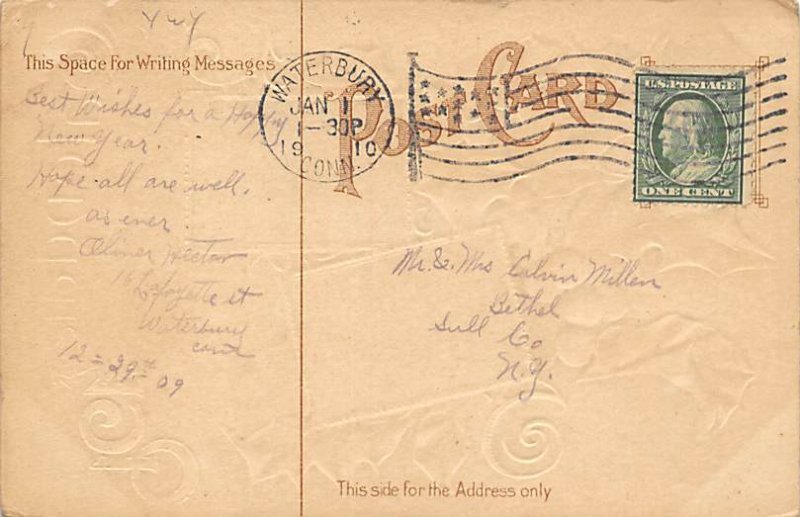 This Space For Writing Messages
Best Wishes for a Happy
New Year.
Hope all are well.
as ever.
Oliver Hector
Lafayette st
Waterbury
conn
12-29th-09
POST CARD
WATERBURY
JAN 1
1-30P
1910
CONN.
U.S. POSTAGE
ONE CENT
Mr. & Mrs Calvin Millen
Bethel
Sull Co
N.Y.
This side for the Address only